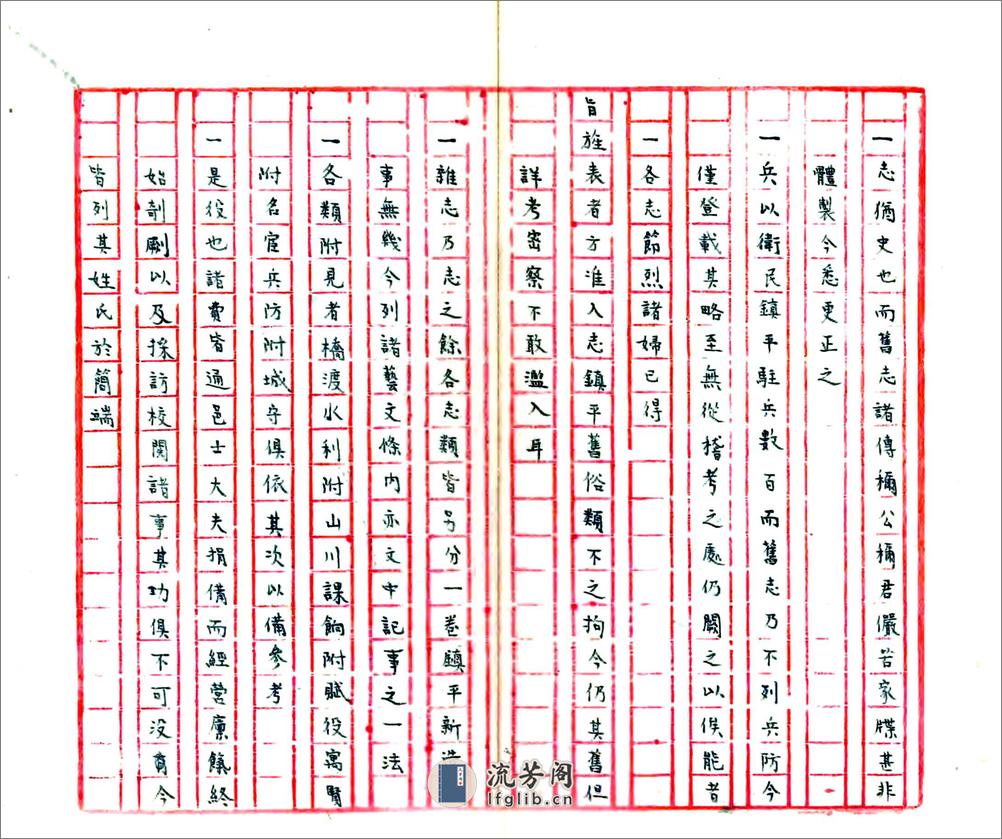 一志猶史也而舊志諸傳稱公稱君儼若家牒甚非
體製今悉更正之
一兵以衛民鎮平駐兵數百而舊志乃不列兵防今
僅登載其略至無從稽考之處仍闕之以俟能者
一各志節烈諸婦已得
旨旌表者方准入志鎮平舊俗類不之拘今仍其舊但
詳考密察不敢濫入耳
一雜志乃志之餘各志類皆另分一卷鎮平新造
事無幾今列諸藝文條內亦文中記事之一法
一各類附見者橋渡水利附山川課餉附賦役寓賢
附名宦兵防附城守俱依其次以備參考
一是役也諸費皆通邑士大夫捐備而經營廩餼終
始剞劂以及採訪校閱諸事其功俱不可沒今
皆列其姓氏於簡端
流芳阁
lfglib.cn